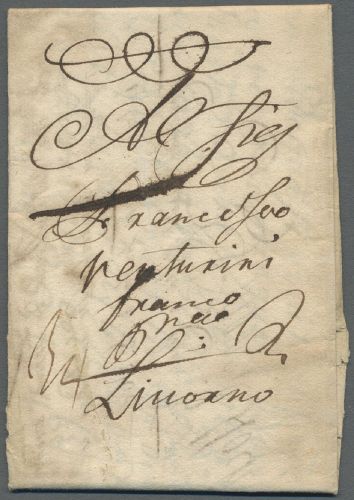 Al Sig
Francesco
Venturini
franco
Livorno